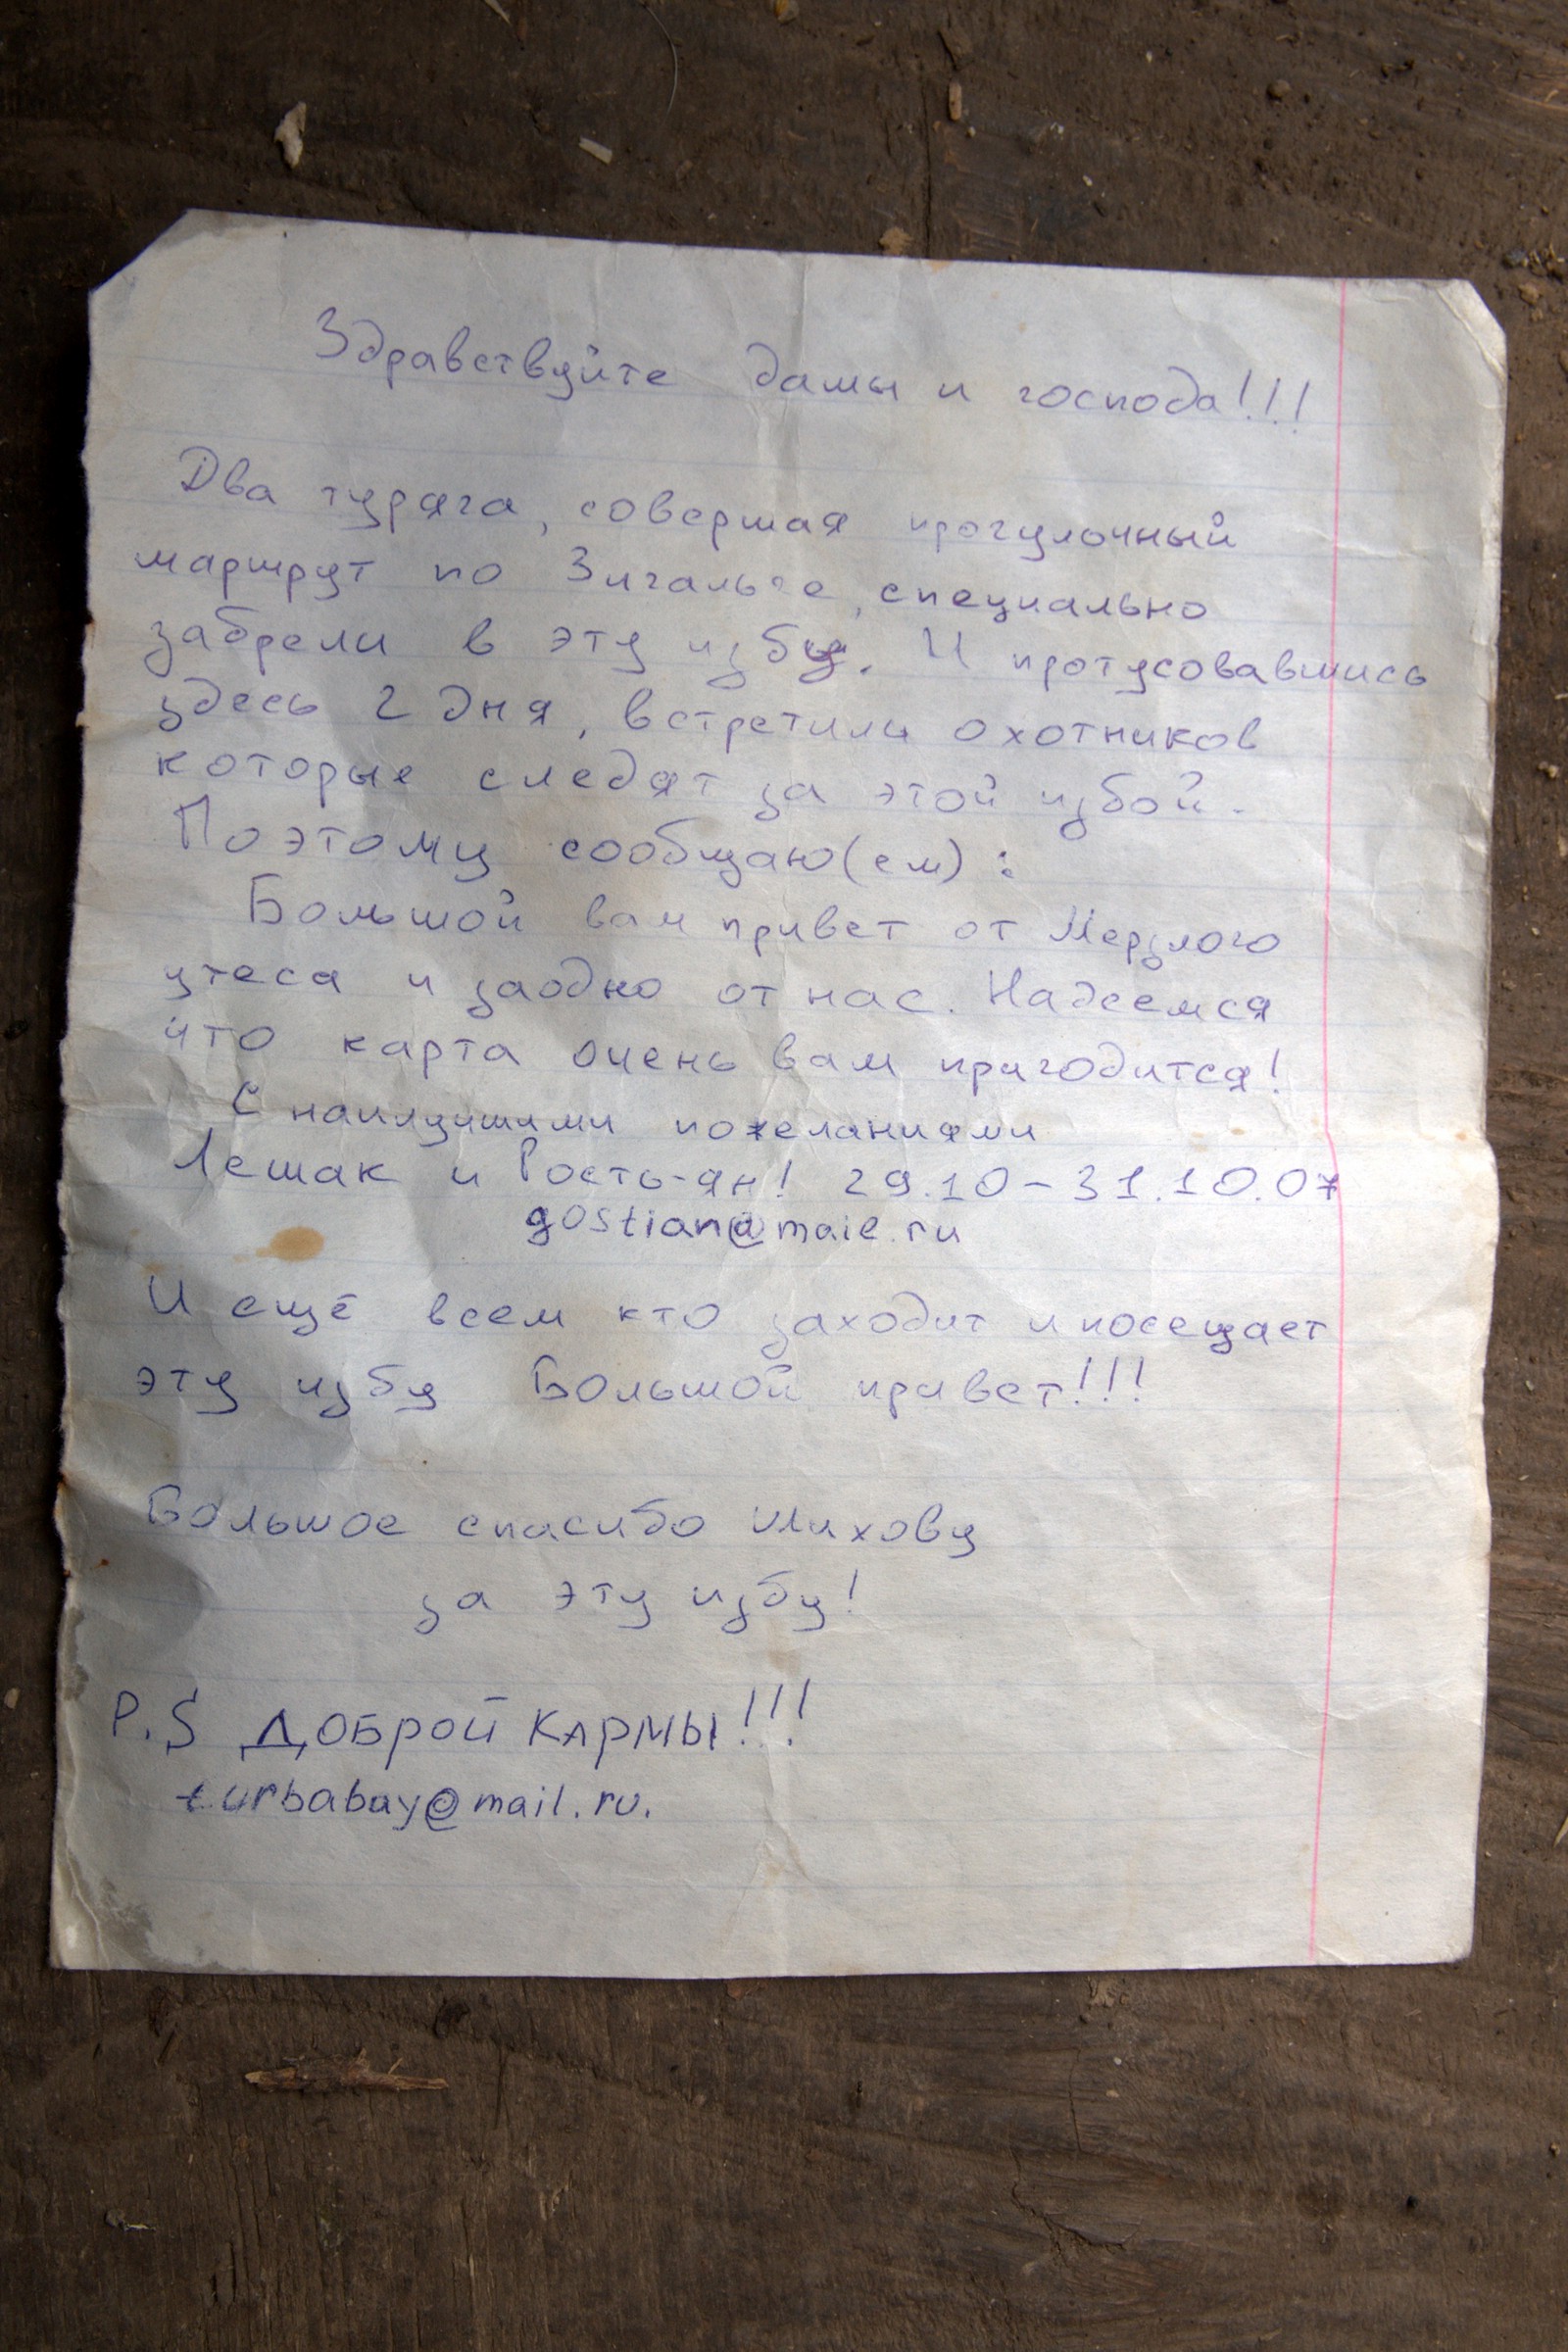 Здравствуйте дамы и господа!!!
Два туряга, совершая прогулочный
маршрут по Зигальге, специально
забрели в эту избу. И протусовавшись
здесь 2 дня, встретили охотников
которые следят за этой избой.
Поэтому сообщаю(ем):
Большой вам привет от Мерзлого
утеса и заодно от нас. Надеемся
что карта очень вам пригодится!
С наилучшими пожеланиями
Лешак и Гость-ян! 29.10-31.10.07
gostian@mail.ru
И ещё всем кто заходит и посещает
эту избу Большой привет!!!
Большое спасибо
за эту избу!
P.S ДОБРОЙ КАРМЫ!!!
turbabay@mail.ru.